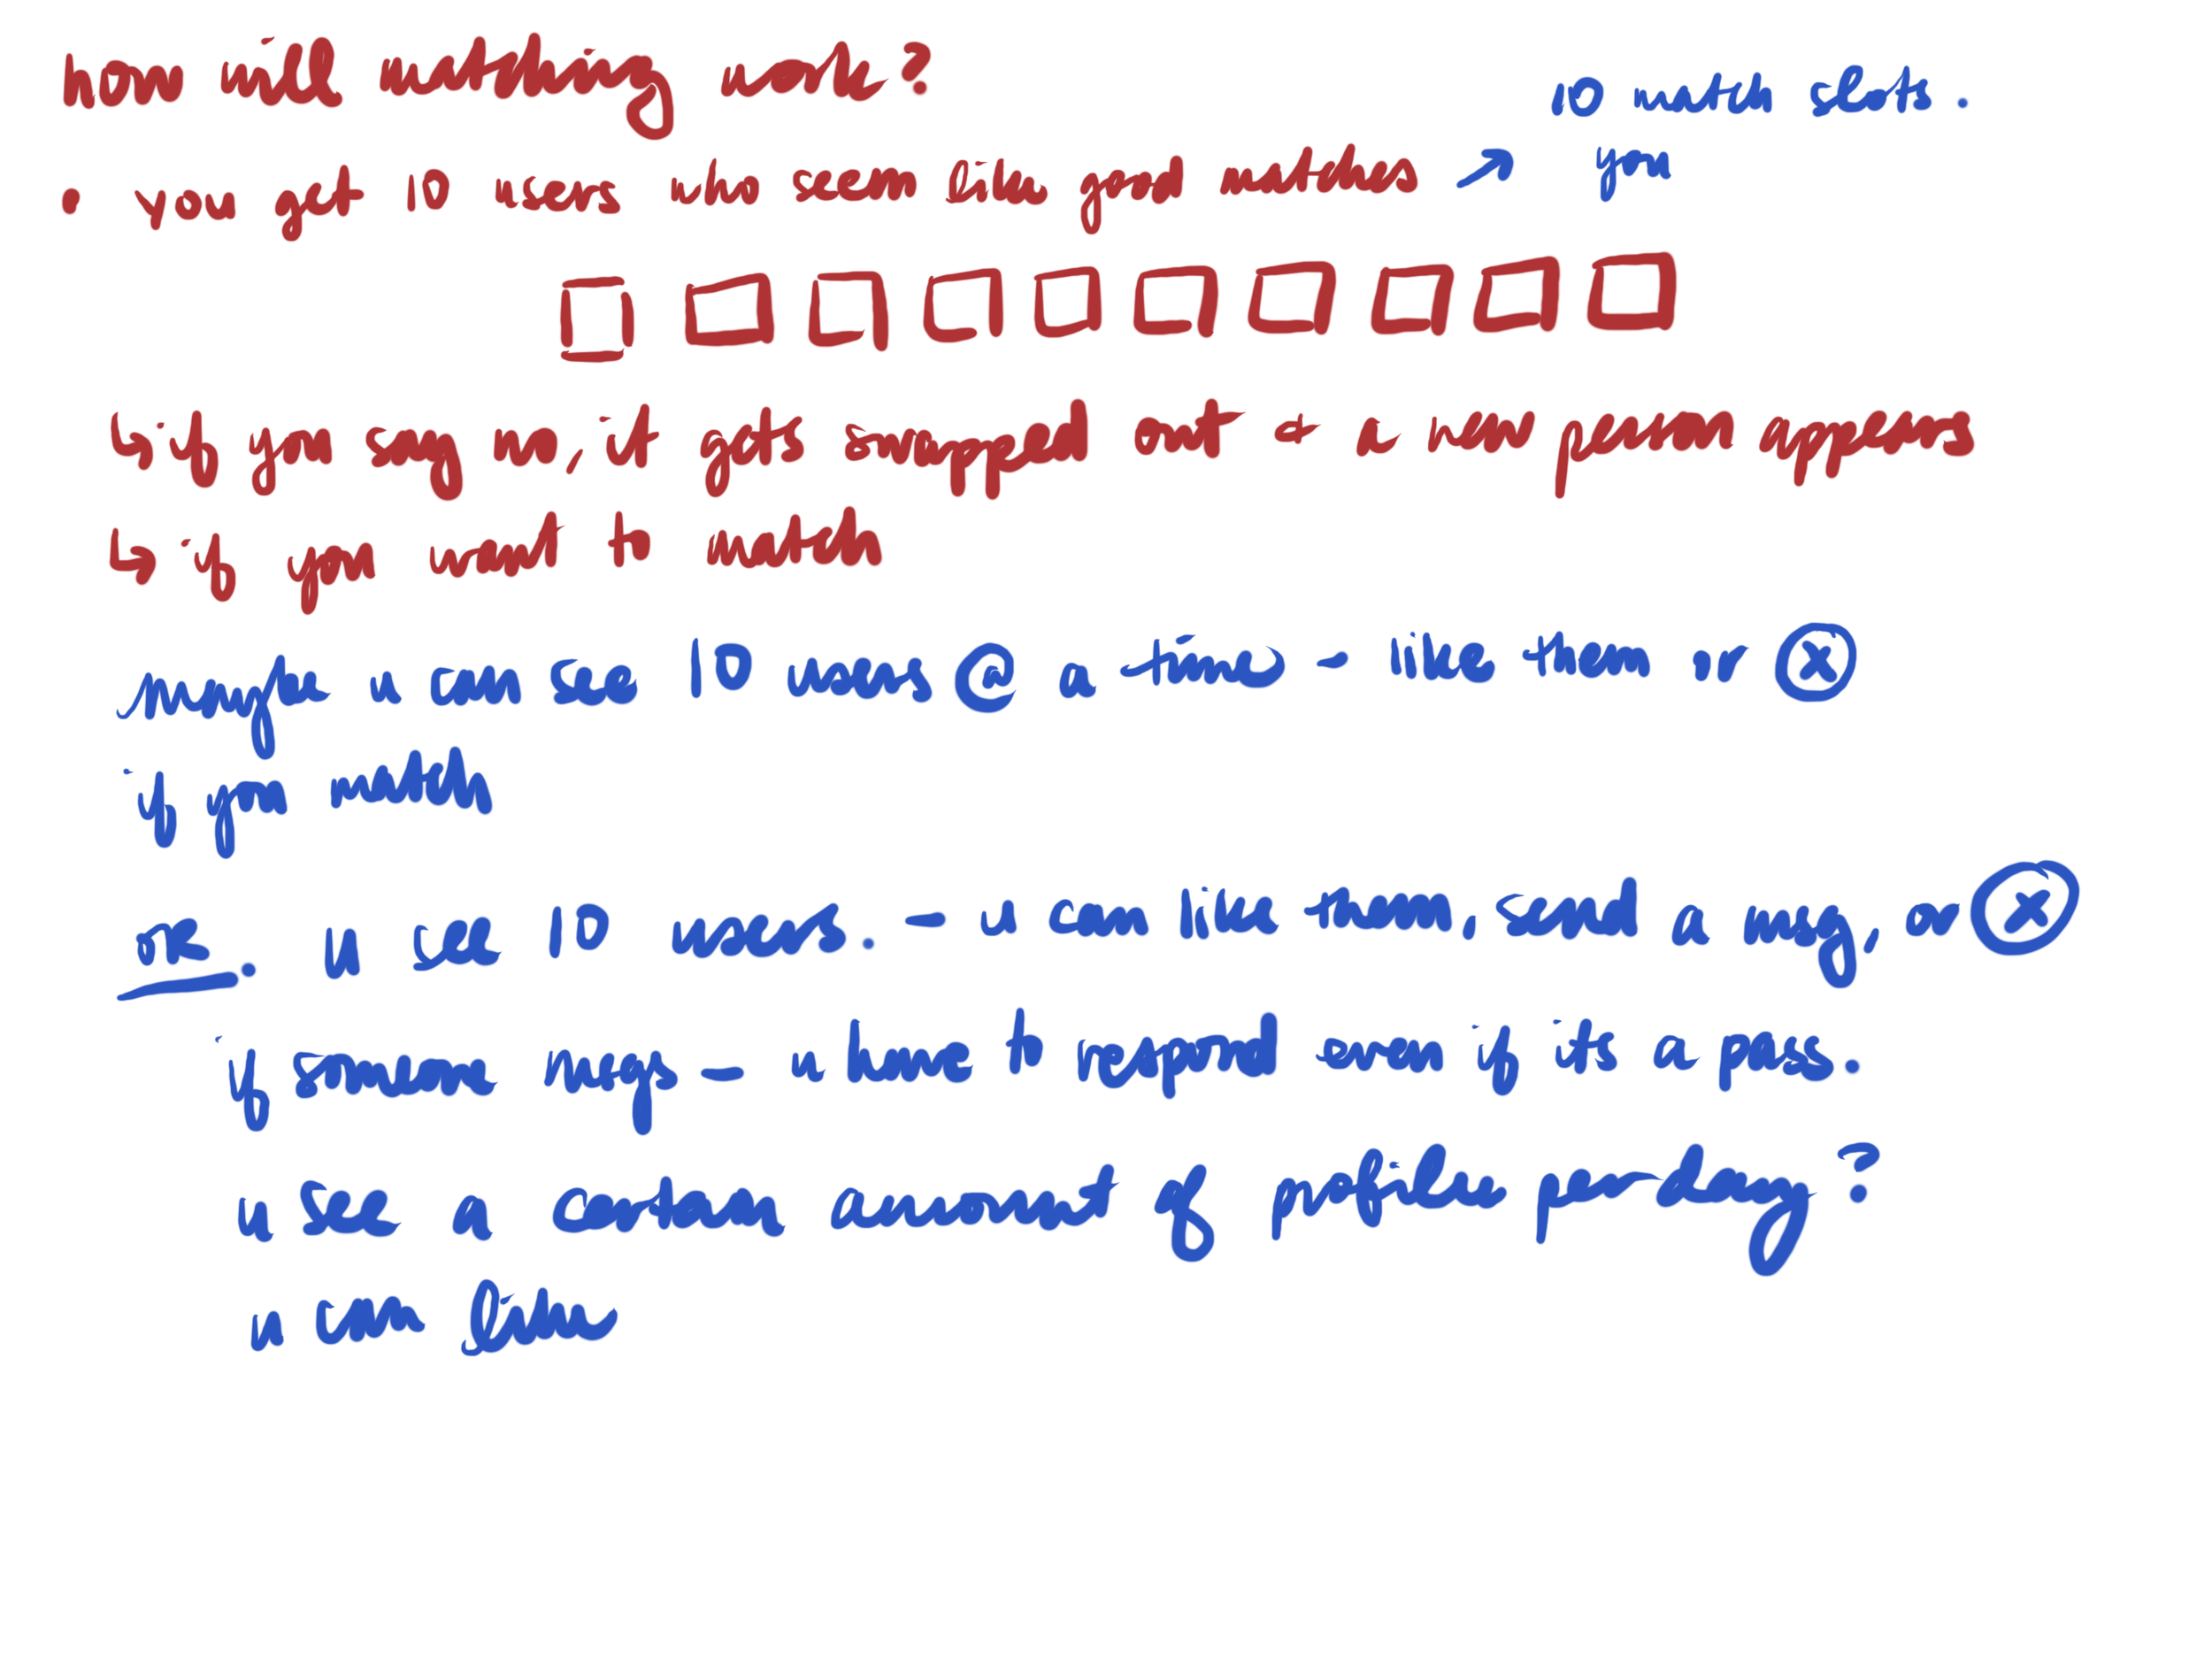 how will matching work?
10 match slots.
• you get 10 users who seem like good matches → you
↳ if you say no, it gets swapped out + a new person appears
↳ if you want to match
maybe u can see 10 users @ a time - like them or ⓧ
if you match
OR. u see 10 users. - u can like them, send a msg, or ⓧ
if someone msgs - u have to respond even if its a pass.
u see a certain amount of profiles per day?
u can like